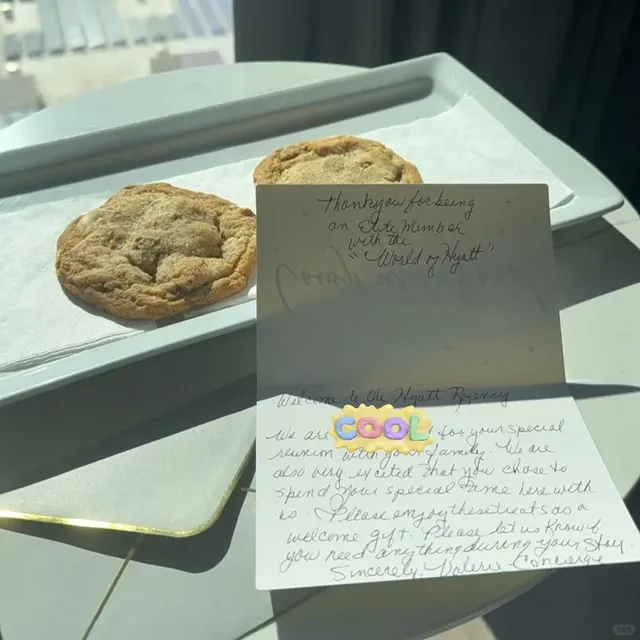 Thankyou for being
an Elite Member
with the
"World of Hyatt"
Welcome to the Hyatt Regency
We are COOL for your special
reunion with your family. We are
also very excited that you chose to
spend your special time here with
us. Please enjoy these treats as a
welcome gift. Please let us know if
you need anything during your stay.
Sincerely, Valerie Concierge